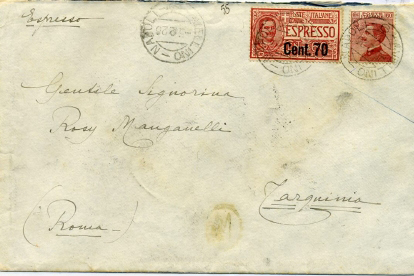 Espresso
55
NAPOLI
POSTE ITALIANE
ESPRESSO
Cent. 70
Gentile Signorina
Rosy Manganelli
Tarquinia
(Roma)